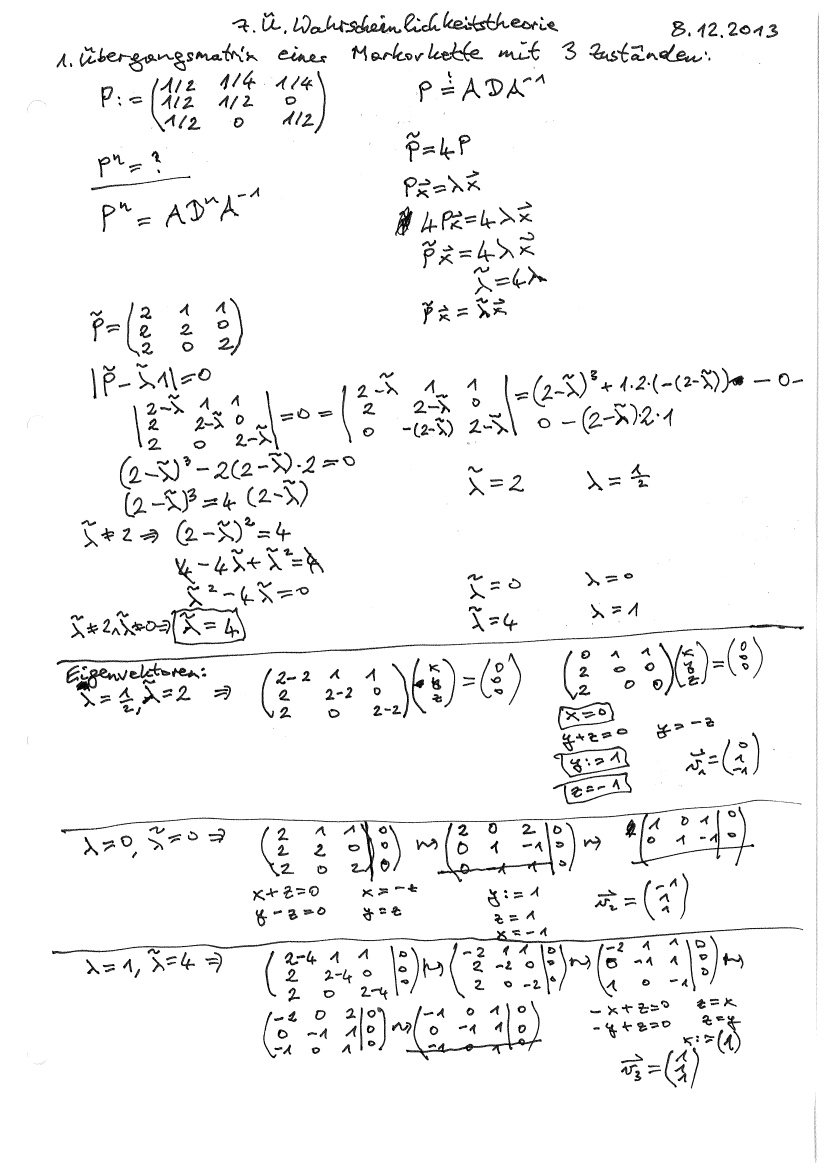 7. Ü. Wahrscheinlichkeitstheorie 8.12.2013
1. Übergangsmatrix einer Markovkette mit 3 Zuständen:
P := (1/2 1/4 1/4
1/2 1/2 0
1/2 0 1/2)
Pⁿ = ?
Pⁿ = A Dⁿ A⁻¹
P =! A D A⁻¹
P̃ = 4P
Px⃗ = λx⃗
4Px⃗ = 4λx⃗
P̃x⃗ = 4λx⃗
λ̃ = 4λ
P̃x⃗ = λ̃x⃗
P̃ = (2 1 1
2 2 0
2 0 2)
|P̃ - λ̃1| = 0
|2-λ̃ 1 1
2 2-λ̃ 0
2 0 2-λ̃| = 0 = |2-λ̃ 1 1
2 2-λ̃ 0
0 -(2-λ̃) 2-λ̃| = (2-λ̃)³ + 1·2·(-(2-λ̃)) - 0 -
0 - (2-λ̃)·2·1
(2-λ̃)³ - 2(2-λ̃)·2 = 0
(2-λ̃)³ = 4 (2-λ̃) λ̃ = 2 λ = 1/2
λ̃ ≠ 2 ⇒ (2-λ̃)² = 4
4 - 4λ̃ + λ̃² = 4
λ̃² - 4λ̃ = 0 λ̃ = 0 λ = 0
λ̃ ≠ 2, λ̃ ≠ 0 ⇒ λ̃ = 4 λ̃ = 4 λ = 1
Eigenvektoren:
λ = 1/2, λ̃ = 2 ⇒ (2-2 1 1
2 2-2 0
2 0 2-2) (x
y
z) = (0
0
0) (0 1 1
2 0 0
2 0 0) (x
y
z) = (0
0
0)
x = 0
y+z=0 y = -z
y := 1
z = -1
v⃗₁ = (0
1
-1)
λ = 0, λ̃ = 0 ⇒ (2 1 1 | 0
2 2 0 | 0
2 0 2 | 0) ⇝ (2 0 2 | 0
0 1 -1 | 0
0 -1 1 | 0) ⇝ (1 0 1 | 0
0 1 -1 | 0)
x+z=0 x=-z y := 1
y-z=0 y=z z = 1
x = -1
v⃗₂ = (-1
1
1)
λ = 1, λ̃ = 4 ⇒ (2-4 1 1 | 0
2 2-4 0 | 0
2 0 2-4 | 0) ⇝ (-2 1 1 | 0
2 -2 0 | 0
2 0 -2 | 0) ⇝ (-2 1 1 | 0
0 -1 1 | 0
1 0 -1 | 0) ⇝
(-2 0 2 | 0
0 -1 1 | 0
-1 0 1 | 0) ⇝ (-1 0 1 | 0
0 -1 1 | 0
-1 0 1 | 0)
-x+z=0 z=x
-y+z=0 z=y
x := (1)
v⃗₃ = (1
1
1)